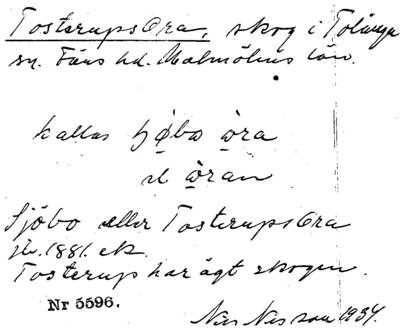 Tosterups Ora, skog i Tolånga
sn. Färs hd. Malmöhus län.
kallas ʃøbo òra
el òran
Sjöbo eller Tosterups Ora
jb. 1881. ek.
Tosterup har ägt skogen.
Nr 5596.
Nils Nilsson 1934.